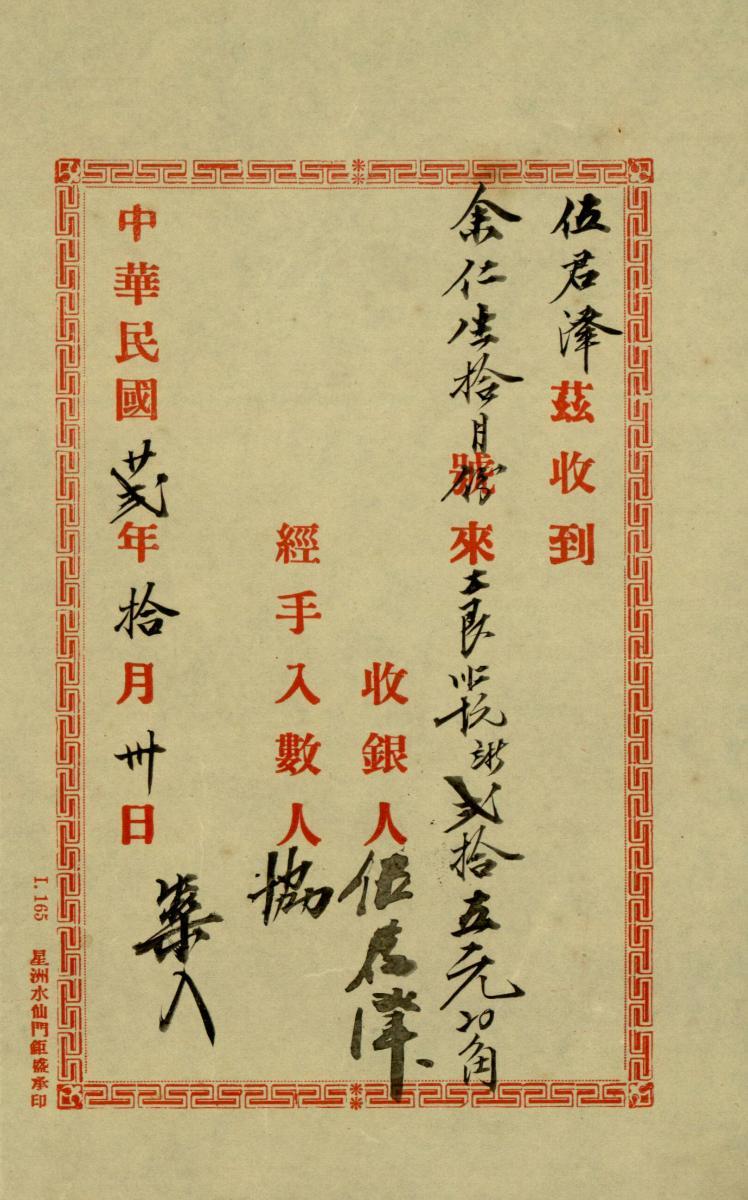 伍君澤茲收到
余仁生拾月份號來艮貳拾五元20角
收銀人伍君澤
經手入數人協
中華民國廿貳年拾月卅日
入
I. 165 星洲水仙門鉅盛承印